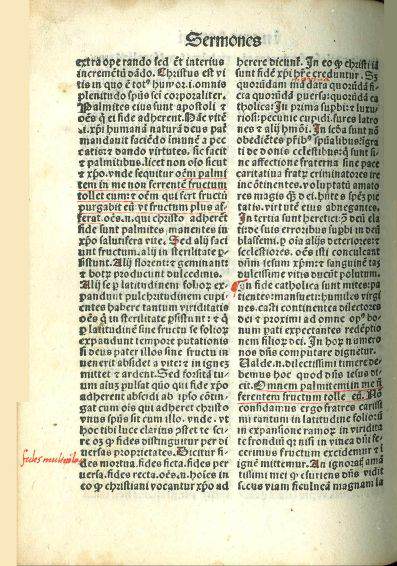 Sermones
extra operando sed et interius
incremētū dādo. Christus est vi
tis in quo ē tot⁹ humor. i. omnis
plenitudo sp̄us sci corporaliter.
Palmites eius sunt apostoli ⁊
oēs q̄ ei fide adherent.
ti. xp̄i humanā naturā deus pat
mandauit faciēdo immunē a pec
catis: ⁊ dando virtutes. sic facit
⁊ palmitibus. licet non oīo sicut
⁊ xp̄o. vnde sequitur oēm palmi
tem in me non ferentē fructum
tollet eum: ⁊ oēm qui fert fructū
purgabit eū vt fructum plus af
ferat. oēs. n. qui christo adherēt
fide sunt palmites manentes in
xp̄o salutifera vite. Sed alij faci
unt fructum. alij in sterilitate p̄
sistunt. Alij florent ⁊ geminant
⁊ botrȳ producunt dulcedinis.
Alij se p̄ latitudinem folior̄ ex
pandunt pulchritudinem cupi
entes habere tantum viriditatis
oēs q̄ in sterilitate p̄sistūt: ⁊ q̄
p̄ latitudinē sine fructu se folior̄
expandunt tempore putationis
si deus pater illos sine fructu in
uenerit abscidet a vite: ⁊ in ignes
mittet ⁊ ardent. Sed forsitā tu
um aius pulsat quo qui fide xp̄o
adherent abscidi ab ip̄o cōtin
gat cum ois qui adheret christo
vnus sp̄us sit cum illo. vnde. vt
hoc tibi luce clarius
re oꝫ q̄ fides distinguitur per di
uersas proprietates. Dicitur fi
des mortua. fides ficta. fides per
uersa. fides recta. oēs. n. hoīes in
eo q̄ christiani vocantur xp̄o ad
herere dicunt̄. In eo q̄ christiāi
sunt fide xp̄i
quorūdam fi
ecta: quorūdā puersa: quorūdā ca
tholica: In prima sup̄bi: luxu
riosi: pecunie cupidi. fures latro
nes ⁊ alij hmōi. In scd̄a sunt nō
obediētes p̄fib⁹ sp̄ualibus: igra
ti de donis celestibus: q̄ sunt si
ne affectione fraterna sine pace
caritatiua fratr̄ criminatores in
incōtinentes. voluptatū amato
res magis q̄ dei. hn̄tes spēm pie
tatis. virtutē eius abnegantes.
In tertia sunt heretici: q̄ deū ela
tiōe suis erroribus sup̄bi in deū
blasfemi. p̄ oīa alijs deteriores: ⁊
ecclesiasticos. oēs isti conculcant
dn̄m iesum xp̄m: ⁊ sanguinē tā
dulcissime vitis ducūt polutum.
In fide catholica sunt mites: pa
tientes: mansueti: humiles virgi
nes. casti continentes dilectores
dei ⁊ proximi ad omne op⁹ bo
num pati expectantes redēptio
nem filior̄ dei. In hor̄ numero
nos dn̄s computare dignetur.
Valde. n. dilectissimi timere de
bemus hoc quod dn̄s iesus di
cit. Omnem palmitem in me nō
ferentem fructum tollet eū. Nō
confidamus ergo fratres carissi
mi tantum in latitudine folior̄
in expansione ramor̄ in viridita
te frondiū q̄r nisi in vinea dn̄i fe
cerimus fructum excidemur ⁊ ī
ignē mittemur. An ignorat̄
tissimi. q̄
sicus viam ficulnea magnam la